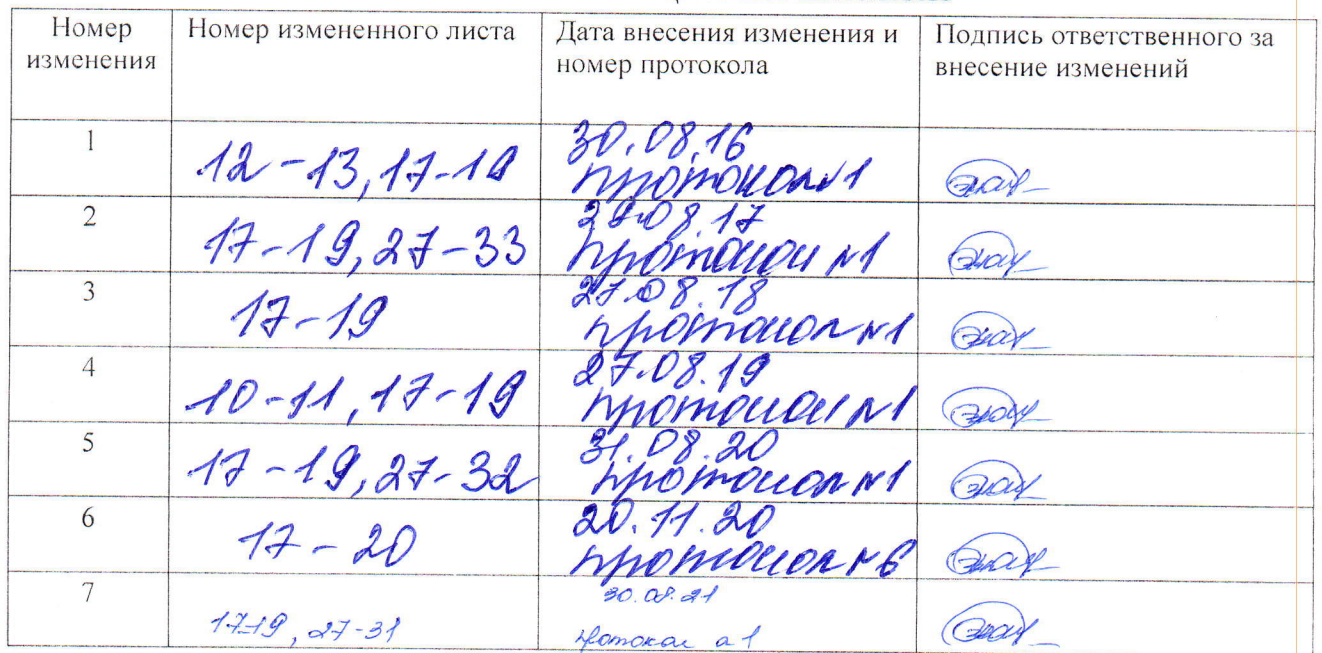 Номер изменения
Номер измененного листа
Дата внесения изменения и номер протокола
Подпись ответственного за внесение изменений
1
12-13, 17-19
30.08.16
протокол №1
2
17-19, 27-33
29.08.17
протокол №1
3
17-19
27.08.18
протокол №1
4
10-11, 17-19
27.08.19
протокол №1
5
17-19, 27-32
31.08.20
протокол №1
6
17-20
20.11.20
протокол №6
7
17-19, 27-31
30.08.21
протокол №1